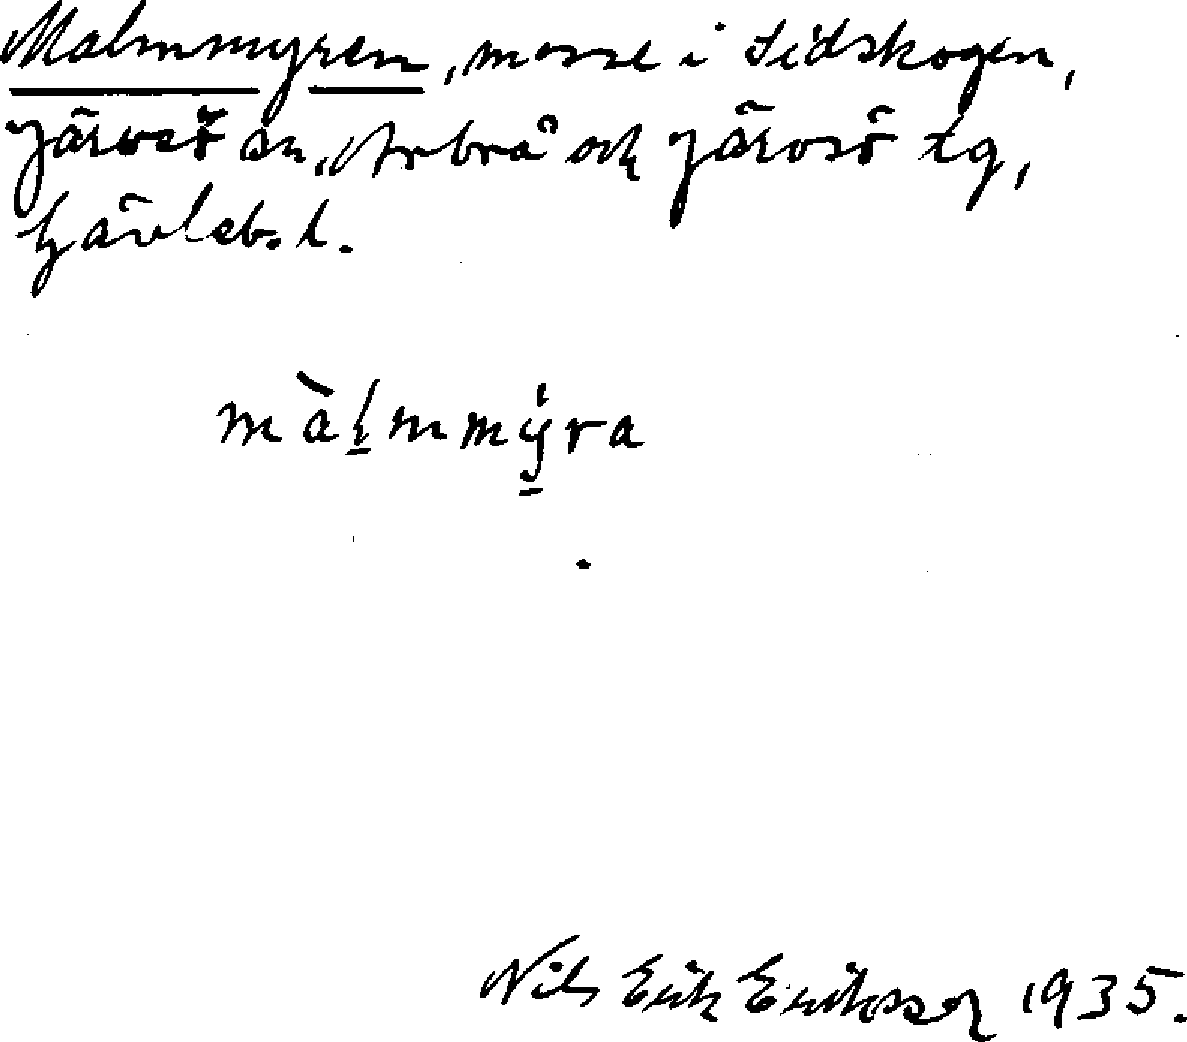 Malmmyren, mosse i Lidskogen,
Järvsö sn, Arbrå och Järvsö tg,
Gävleb. l.
màlmmýra
Nils Erik Eriksson 1935.